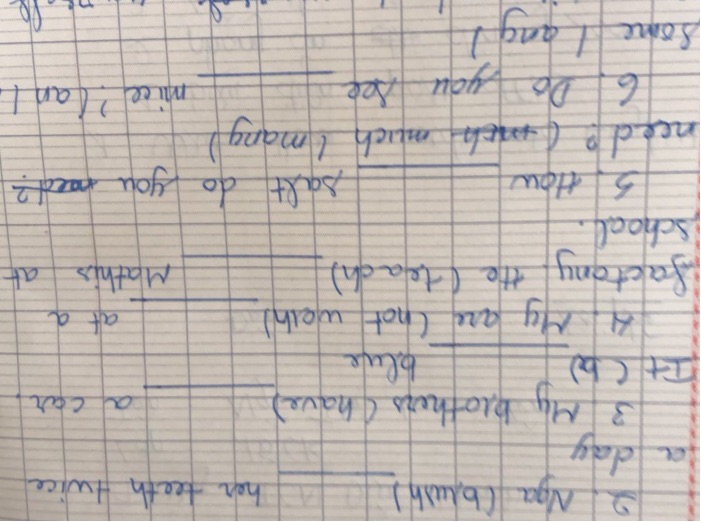 2. Nga (brush) ________ her teeth twice
a day
3 My brothers (have) ________ a car.
It (be) ________ blue
4. My are (not work) ________ at a
factory. He (teach) ________ Maths at
school.
5. How ________ salt do you
need? (much / many)
6. Do you see ________ mice? (an /
some / any)